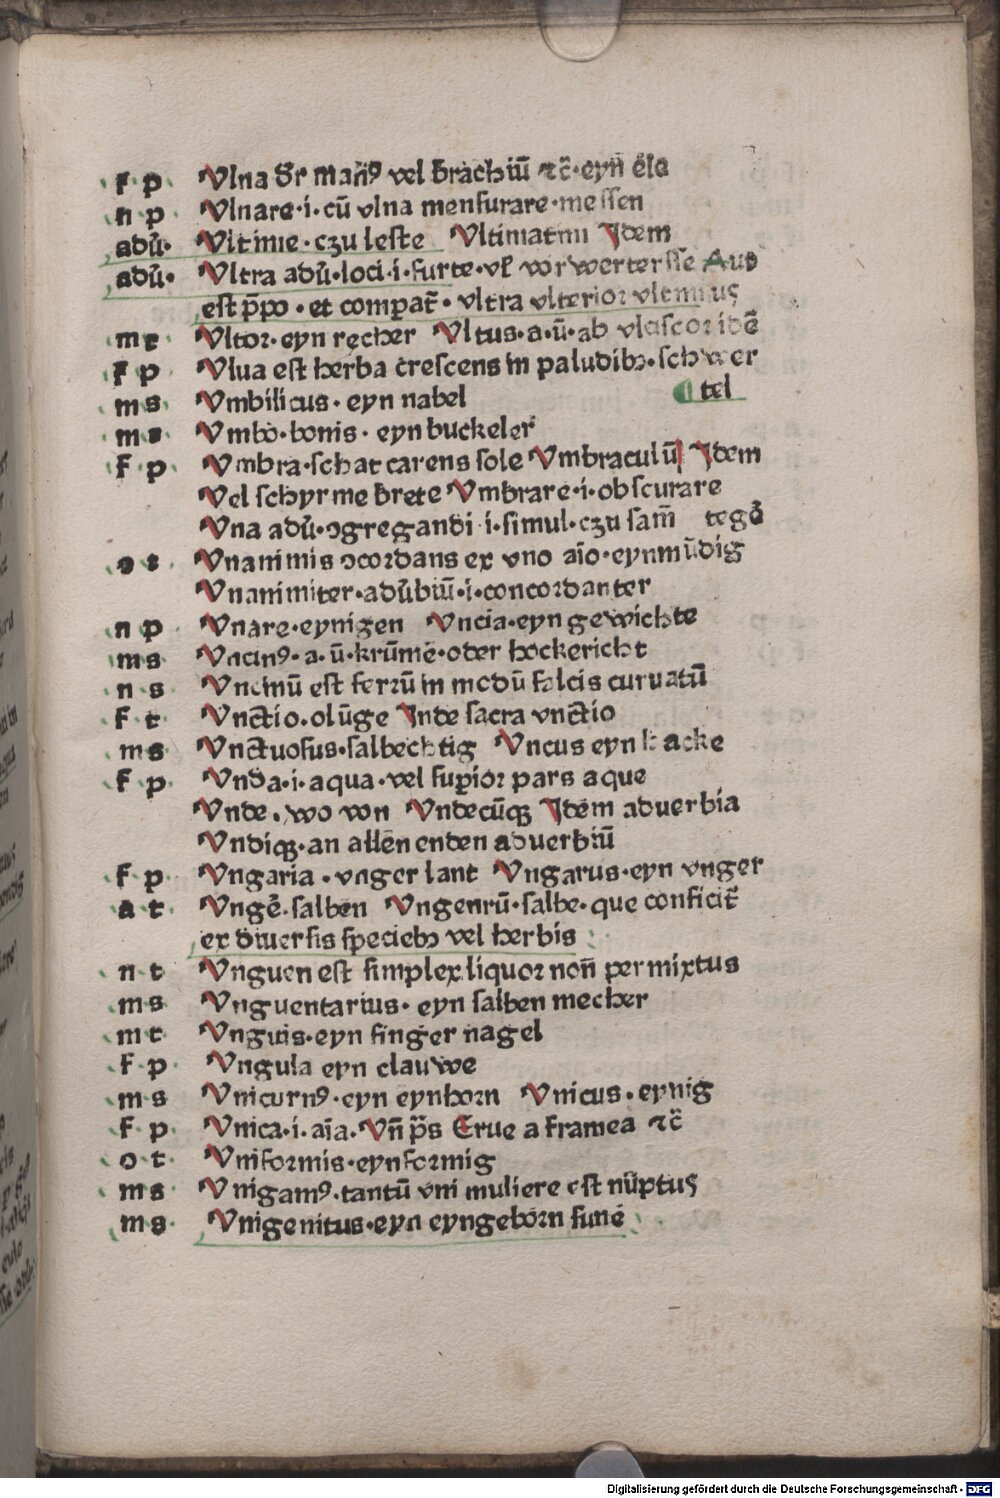 f p Vlna dr̄ manꝰ vel brachiū ⁊c̄·eyn ele
n p Vlnare·i·cū vlna mensurare·messen
adū· Vltime·czu leste Vltimatim Jdem
adū· Vltra adū·loci·i·furte·vl̄ vorwertersse Aus
est p̄po·et compat̄·vltra vlterior vltimus
m t Vltor·eyn recher Vltus·a·ū·ab vlciscor idē
f p Vlua est herba crescens in paludibꝫ·schwer
m s Vmbilicus·eyn nabel tel
m s Vmbo·bonis·eyn buckeler
f p Vmbra·schat carens sole Vmbraculū Jdem
Vel schyrme brete Vmbrare·i·obscurare
Vna adū·ꝯgregandi·i·simul·czu sam̄ tegō
o t Vnanimis ꝯcordans ex vno aīo·eynmūdig
Vnanimiter·adūbiū·i·concordanter
n p Vnare·eynigen Vncia·eyn gewichte
m s Vncinꝰ·a·ū·krūme·oder hockericht
n s Vncinū est ferrū in modū falcis curuatū
f t Vnctio·olūge Jnde sacra vnctio
m s Vnctuosus·salbechtig Vncus eyn hacke
f p Vnda·i·aqua·vel supior pars aque
Vnde·wo von Vndecūqꝫ Jdem aduerbia
Vndiqꝫ·an allen enden aduerbiū
f p Vngaria·vnger lant Vngarus·eyn vnger
a t Vngē·salben Vngenrū·salbe·que conficit̄
ex diuersis speciebꝫ vel herbis
n t Vnguen est simplex liquor non̄ permixtus
m s Vnguentarius·eyn salben mecher
m t Vnguis·eyn finger nagel
f p Vngula eyn clauwe
m s Vnicurnꝰ·eyn eynhorn Vnicus·eynig
f p Vnica·i·aīa·Vn̄ p̄s Erue a framea ⁊c̄
o t Vniformis·eynformig
m s Vnigamꝰ·tantū vni muliere est nūptus
m s Vnigenitus·eyn eyngeborn sune
Digitalisierung gefördert durch die Deutsche Forschungsgemeinschaft - DFG